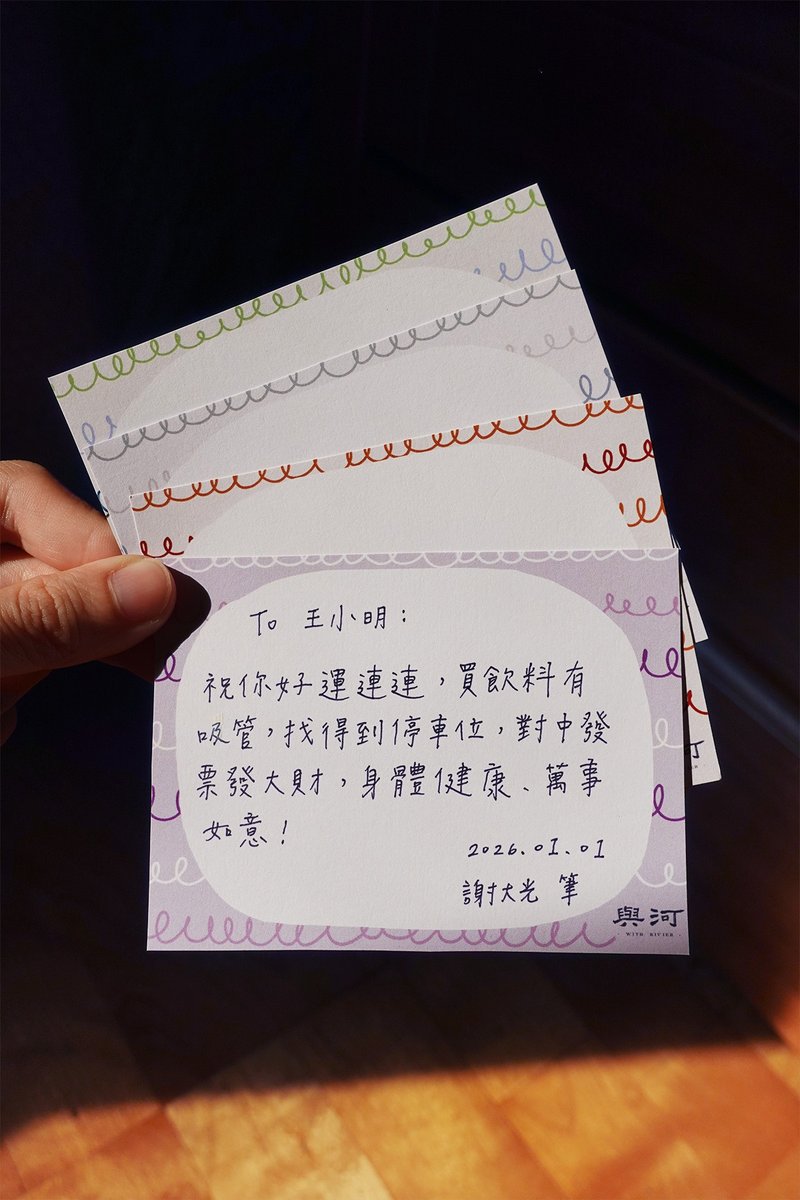 To 王小明：
祝你好運連連，買飲料有
吸管，找得到停車位，對中發
票發大財，身體健康、萬事
如意！
2026.01.01
謝大光 筆
與河
WITH RIVIER